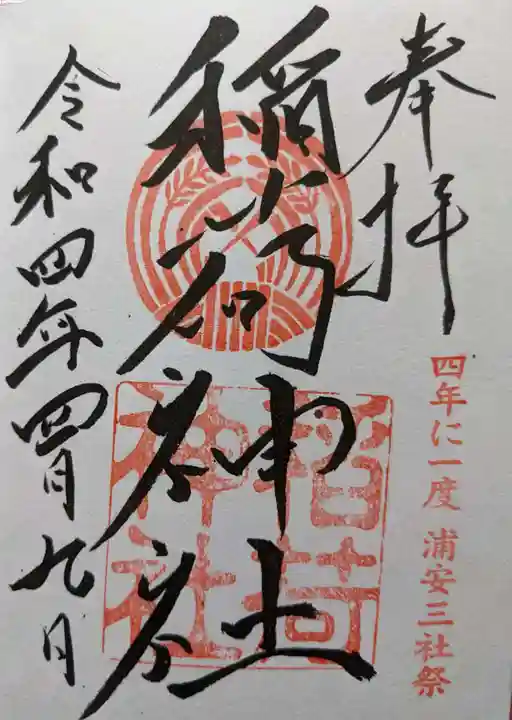 奉拝
四年に一度 浦安三社祭
稲荷神社
稲荷
神社
令和四年四月九日